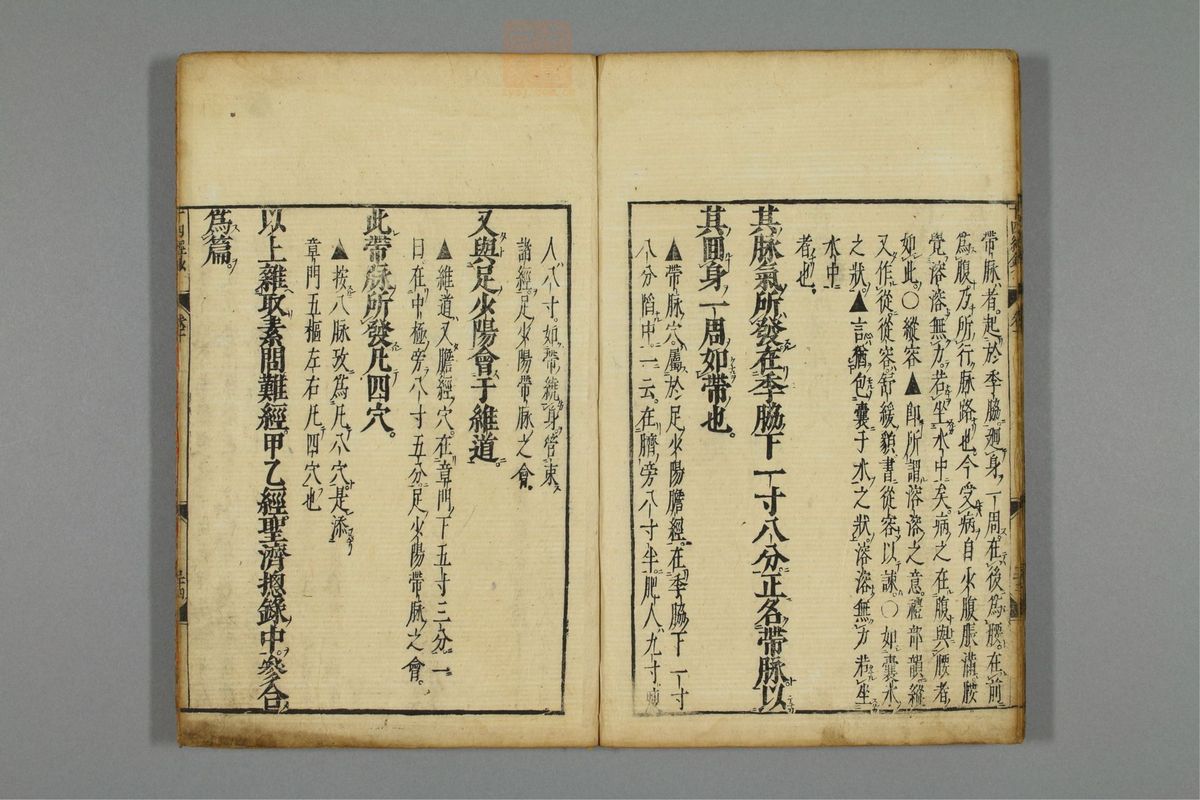 帶脉者起於季脇廻身一周在後為腰在前
為腹乃所行脉路也今受病自火腹脹滿腰
覺溶溶無力若坐水中矣病之在腹與腰者
如此○縱容▲即所謂溶溶之意禮部韻縱
又作從從容舒緩貌書從容以諫○如囊水
之狀▲言猶包囊于水之狀溶溶無力若坐
水中
者也
其脉氣所發在季脇下一寸八分正名帶脉以
其回身一周如帶也
▲帶脉穴屬於足少陽膽經在季脇下一寸
八分陷中一云在臍旁八寸半肥人九寸
人八寸如帶繞身管束
諸經足少陽帶脉之會
又與足少陽會于維道
▲維道又膽經穴在章門下五寸三分一
曰在中極旁八寸五分足少陽帶脉之會
此帶脉所發凡四穴
▲按八脉攷為凡八穴是添
章門五樞左右凡四穴也
以上雜取素問難經甲乙經聖濟摠錄中參合
為篇